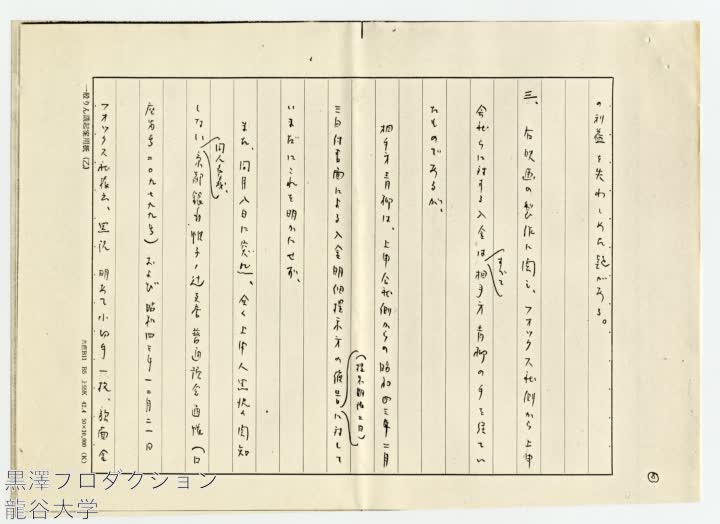 の利益を失わしめた疑がある。
三、右映画の製作に関し、フオックス社側から上申
会社らに対する入金はすべて相手方青柳の手を経てい
たものであるが、
相手方青柳は、上申会社側からの昭和四三年二月
三日付書面による入金明細提示方の催告に対して
(提示期限二日)
いまだにこれを明かにせず、
また、同月八日に突如、全く上申人黒沢の関知
しない京都銀行帷子ノ辻支店普通預金通帳(口
同人名義、
座番号二〇九七九九号)および昭和四二年一二月二一日
フオックス社振出、黒沢明あて小切手一枚、額面金
一般りん議起案用紙(乙)
黒澤プロダクション
龍谷大学